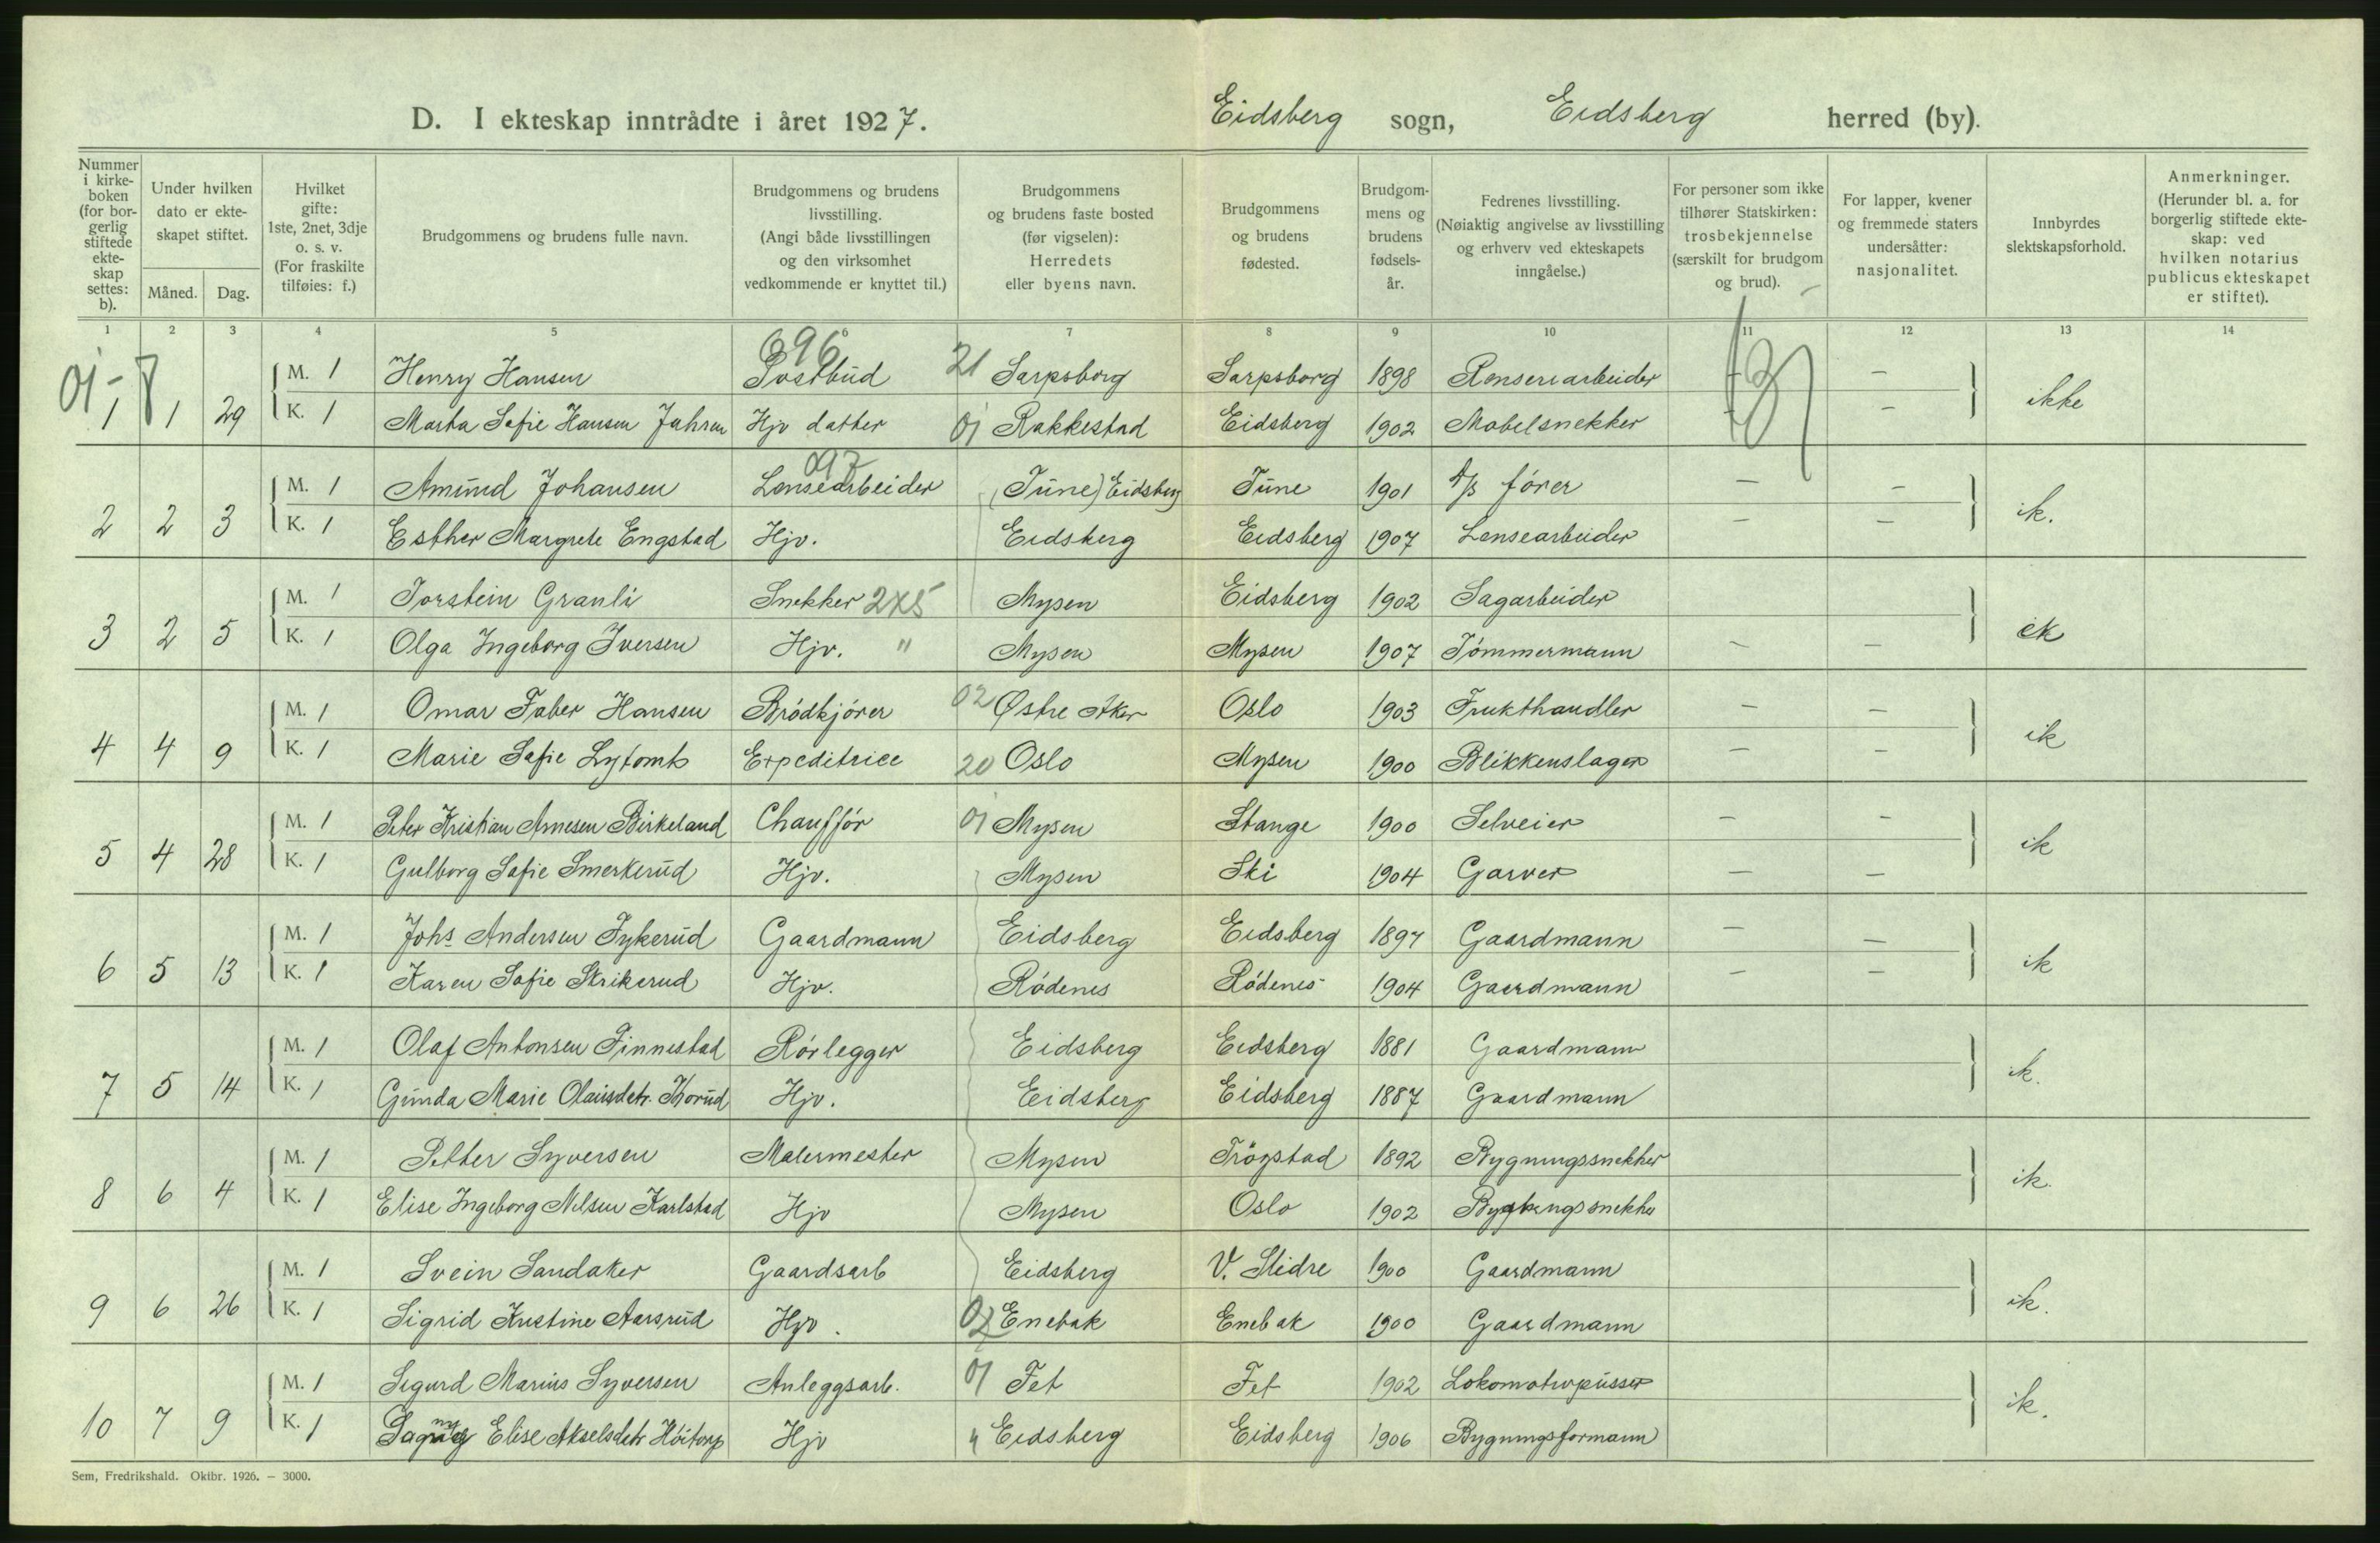 D. I ekteskap inntrådte i året 1927. Eidsberg sogn, Eidsberg herred (by).
Nummer i kirkeboken (for borgerlig stiftede ekteskap settes: b).
Under hvilken dato er ekteskapet stiftet.
Måned. Dag.
Hvilket gifte: 1ste, 2net, 3dje o. s. v. (For fraskilte tilføies: f.)
Brudgommens og brudens fulle navn.
Brudgommens og brudens livsstilling. (Angi både livsstillingen og den virksomhet vedkommende er knyttet til.)
Brudgommens og brudens faste bosted (før vigselen): Herredets eller byens navn.
Brudgommens og brudens fødested.
Brudgommens og brudens fødselsår.
Fedrenes livsstilling. (Nøiaktig angivelse av livsstilling og erhverv ved ekteskapets inngåelse.)
For personer som ikke tilhører Statskirken: trosbekjennelse (særskilt for brudgom og brud).
For lapper, kvener og fremmede staters undersåtter: nasjonalitet.
Innbyrdes slektskapsforhold.
Anmerkninger. (Herunder bl. a. for borgerlig stiftede ekteskap: ved hvilken notarius publicus ekteskapet er stiftet).
1 2 3 4 5 6 7 8 9 10 11 12 13 14
01-8 696
M. 1 Henry Hansen Postbud 21 Sarpsborg Sarpsborg 1898 Renseriarbeider - -
1 1 29 K. 1 Marta Sofie Hansen Jahren Hjv datter 01 Rakkestad Eidsberg 1902 Møbelsnekker - - ikke
097
M. 1 Amund Johansen Lensearbeider (Tune) Eidsberg Tune 1901 fører - -
2 2 3 K. 1 Esther Margrete Engstad Hjv. Eidsberg Eidsberg 1907 Lensearbeider - - ik.
M. 1 Torstein Granli Snekker 2x5 Mysen Eidsberg 1902 Sagarbeider
3 2 5 K. 1 Olga Ingeborg Iversen Hjv. " Mysen Mysen 1907 Tömmermann - - ik
M. 1 Omar Faber Hansen Brödkjörer 02 Østre Aker Oslo 1903 Frukthandler - -
4 4 9 K. 1 Marie Sofie Lytomt Expeditrice 20 Oslo Mysen 1900 Blikkenslager - - ik
M. 1 Peter Kristian Arnesen Birkeland Chauffør 01 Mysen Stange 1900 Selveier - -
5 4 28 K. 1 Gulborg Sofie Smerkerud Hjv. Mysen Ski 1904 Garver - - ik
M. 1 Johs Andersen Tykerud Gaardmann Eidsberg Eidsberg 1897 Gaardmann - -
6 5 13 K. 1 Karen Sofie Strikerud Hjv. Rødenes Rødenes 1904 Gaardmann - - ik
M. 1 Olaf Antonsen Finnestad Rørlegger Eidsberg Eidsberg 1881 Gaardmann
7 5 14 K. 1 Gunda Marie Olausdetr. Thorud Hjv. Eidsberg Eidsberg 1887 Gaardmann ik.
M. 1 Petter Syversen Malermester Mysen Trögstad 1892 Bygningssnekker
8 6 4 K. 1 Elise Ingeborg Nilsen Karlstad Hjv Mysen Oslo 1902 Bygningssnekker ik.
M. 1 Svein Sandaker Gaardsarb Eidsberg V. Slidre 1900 Gaardmann
9 6 26 K. 1 Sigrid Kristine Aarsrud Hjv. 02 Enebak Enebak 1900 Gaardmann ik.
M. 1 Sigurd Marius Syversen Anleggsarb. 01 Fet Fet 1902 Lokomotivpusser
10 7 9 K. 1 Elise Akselsdetr Höitorp Hjv " Eidsberg Eidsberg 1906 Bygningsformann ik.
Sem, Fredrikshald. Oktbr. 1926. — 3000.